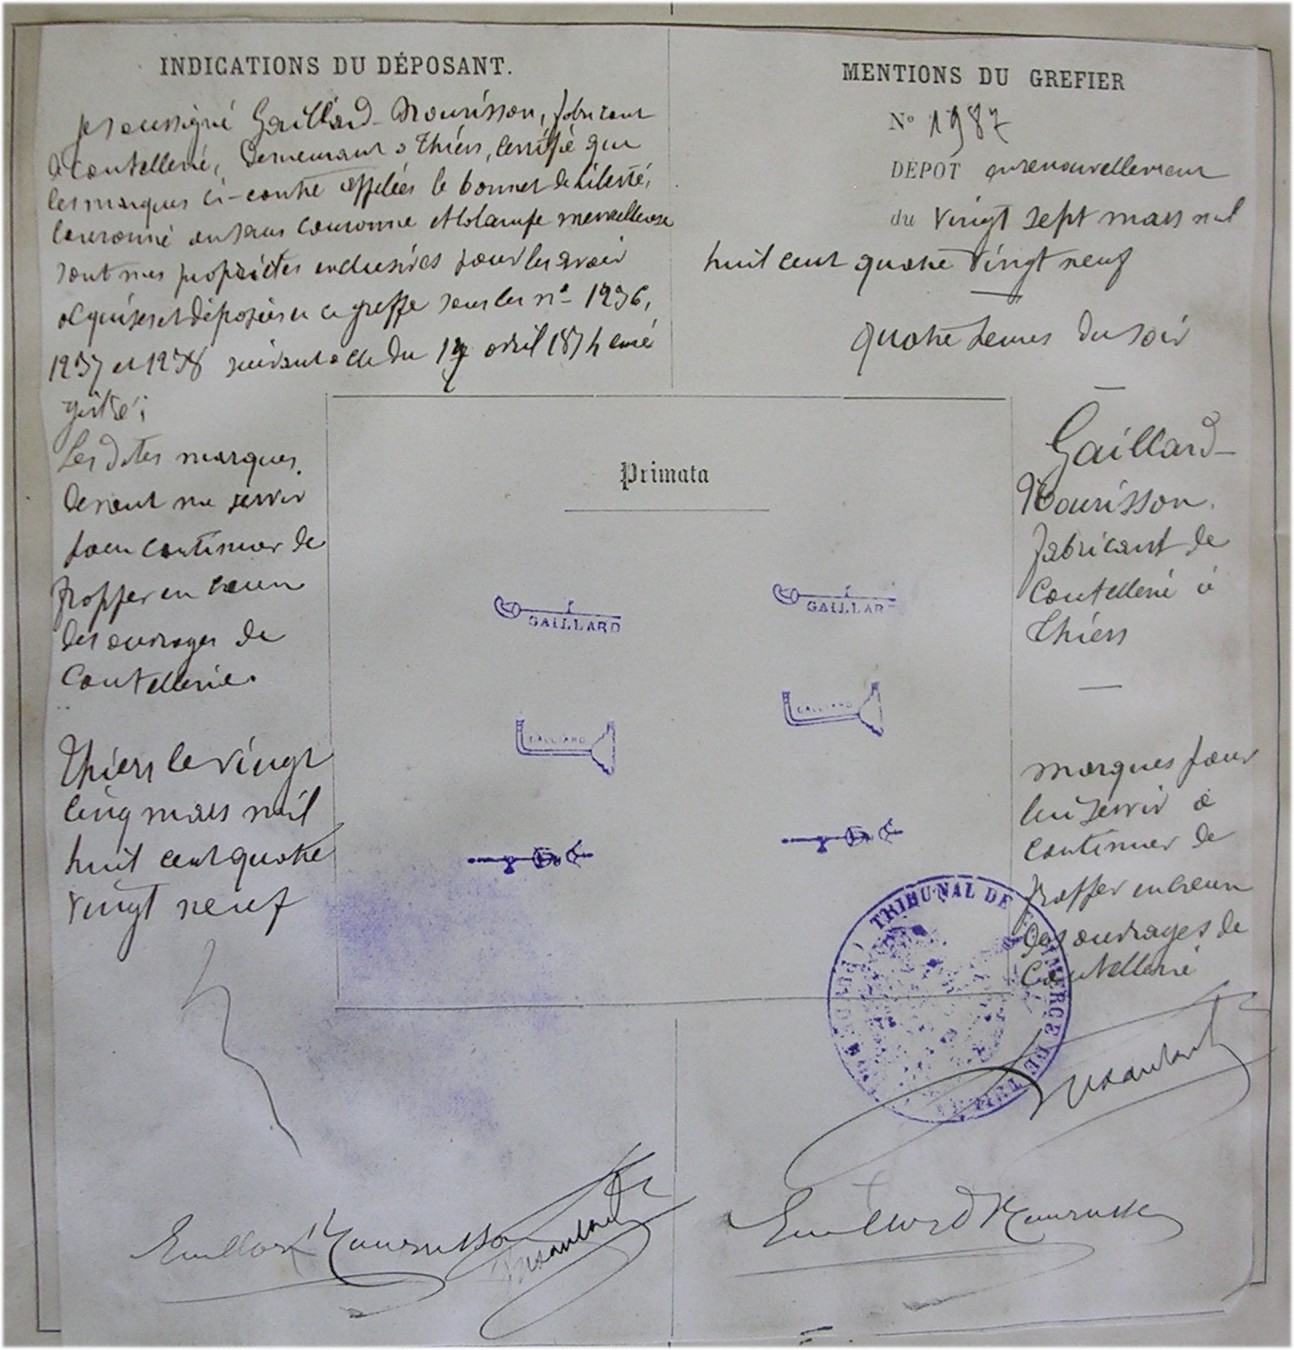 INDICATIONS DU DÉPOSANT.
Je soussigné Gaillard-Nourisson, fabricant
de coutellerie, demeurant à Thiers, certifie que
les marques ci-contre appelées le bonnet de Liberté,
couronné ou sans couronne et la lampe merveilleuse
sont mes propriétés exclusives pour les avoir
acquises et déposées au greffe sous les nos 1236,
1237 et 1238 suivant acte du avril 1874 enré
gistré;
Les dites marques
devant me servir
pour continuer de
frapper en creux
des ouvrages de
Coutellerie.
Thiers le vingt
cinq mars mil
huit cent quatre
vingt neuf
MENTIONS DU GREFIER
No 1987
DÉPOT en renouvellement
du vingt sept mars mil
huit cent quatre vingt neuf
quatre heures du soir
Gaillard-
Nourisson.
fabricant de
Coutellerie à
Thiers
marques pour
lui servir à
continuer de
frapper en creux
des ouvrages de
Coutellerie
Primata
GAILLARD
GAILLAR
GAILLARD
GAILLARD
TRIBUNAL DE COMMERCE DE THIERS
Gaillard Nourisson
Gaillard Nourisson